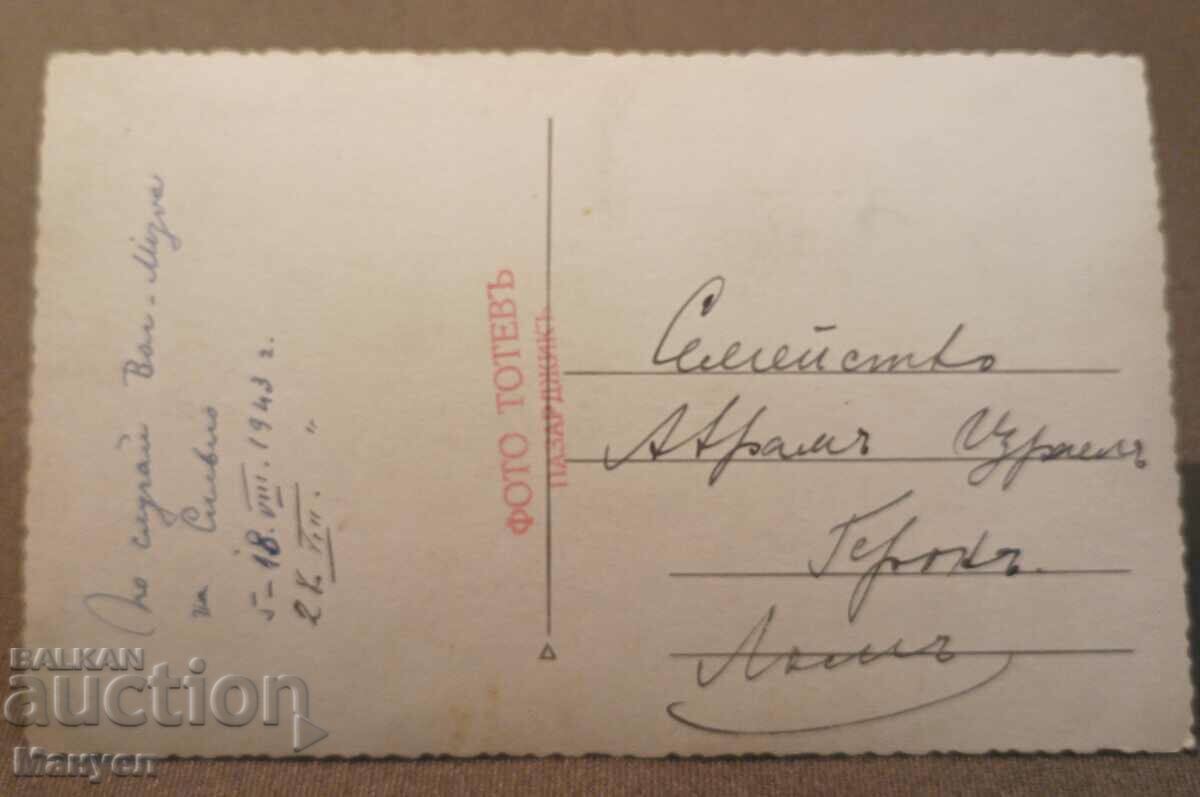 По случай Бар-Мизва
на Силвио
5-18.VIII.1943 г.
2 К. VIII. "
ФОТО ТОТЕВЪ
ПАЗАРДЖИКЪ
Семейство
Аврамъ Израелъ
Геронъ.
Ломъ
BALKAN
auction
Мануел